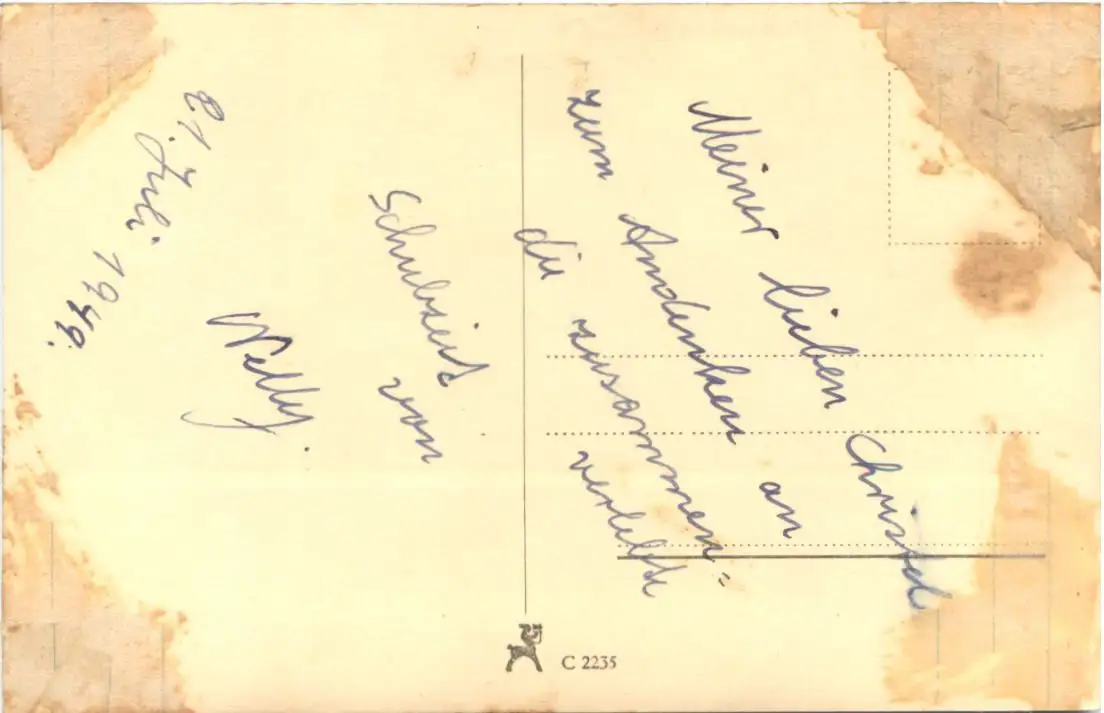 Meiner lieben Christel
zum Andenken an
die zusammen=
verlebte
Schulzeit
von
Nelly.
21. Juli 1949.
C 2235